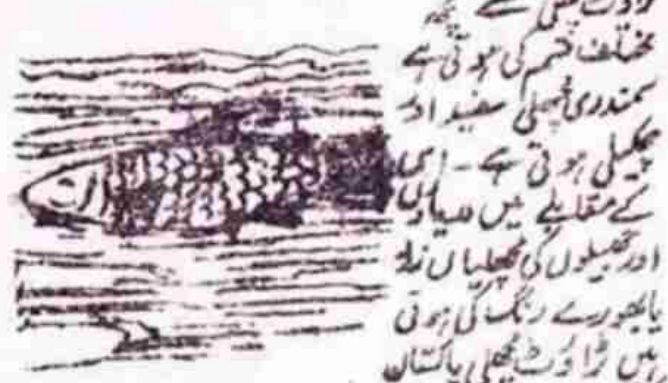 مختلف قسم کی ہوتی ہے
سمندری مچھلی سفید اور
چمکیلی ہوتی ہے ۔ اس
کے مقابلے میں دریاؤں
اور جھیلوں کی مچھلیاں زرد
یا بھورے رنگ کی ہوتی
ہیں ٹراؤٹ مچھلی پاکستان